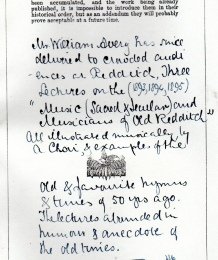 been accumulated, and the work being already
published, it is impossible to introduce them in their
historical order, but as an addendum they will probably
prove acceptable at a future time.
Mr. William Avery has since
delivered to crowded audi-
ences at Redditch, Three
Lectures on the (1893, 1894, 1895)
"Music (Sacred & Secular) and
Musicians of Old Redditch"
All illustrated musically by
a Choir, & examples of the
Old & favourite hymns
& tunes of 50 yrs ago.
The lectures abounded in
humour & anecdote of
the old times.